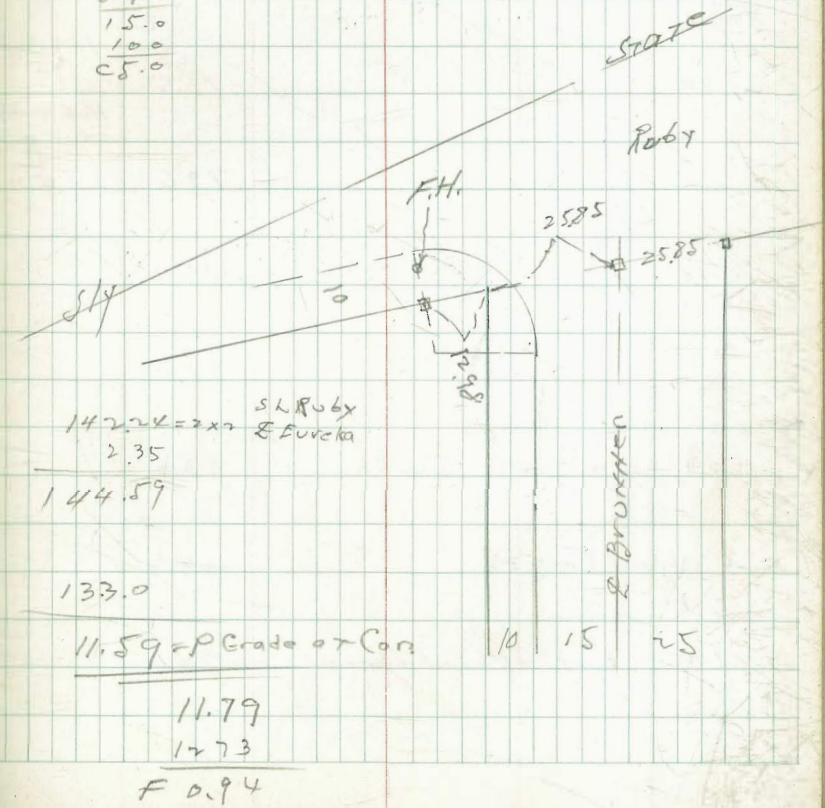 15.0
100
C5.0
STATE
Ruby
F.H.
25.85
25.85
Sly
10
142.24 = 2x2 SL Ruby
E Eureka
2.35
144.59
133.0
11.59 = P Grade at Cor.
11.79
1273
F 0.94
Brunner
10 15 25